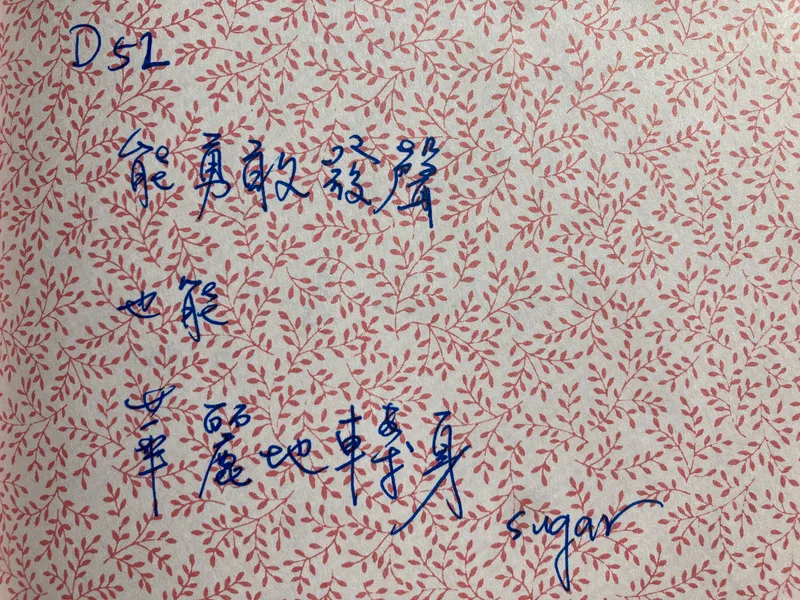 D52
能勇敢發聲
也能
華麗地轉身
sugar